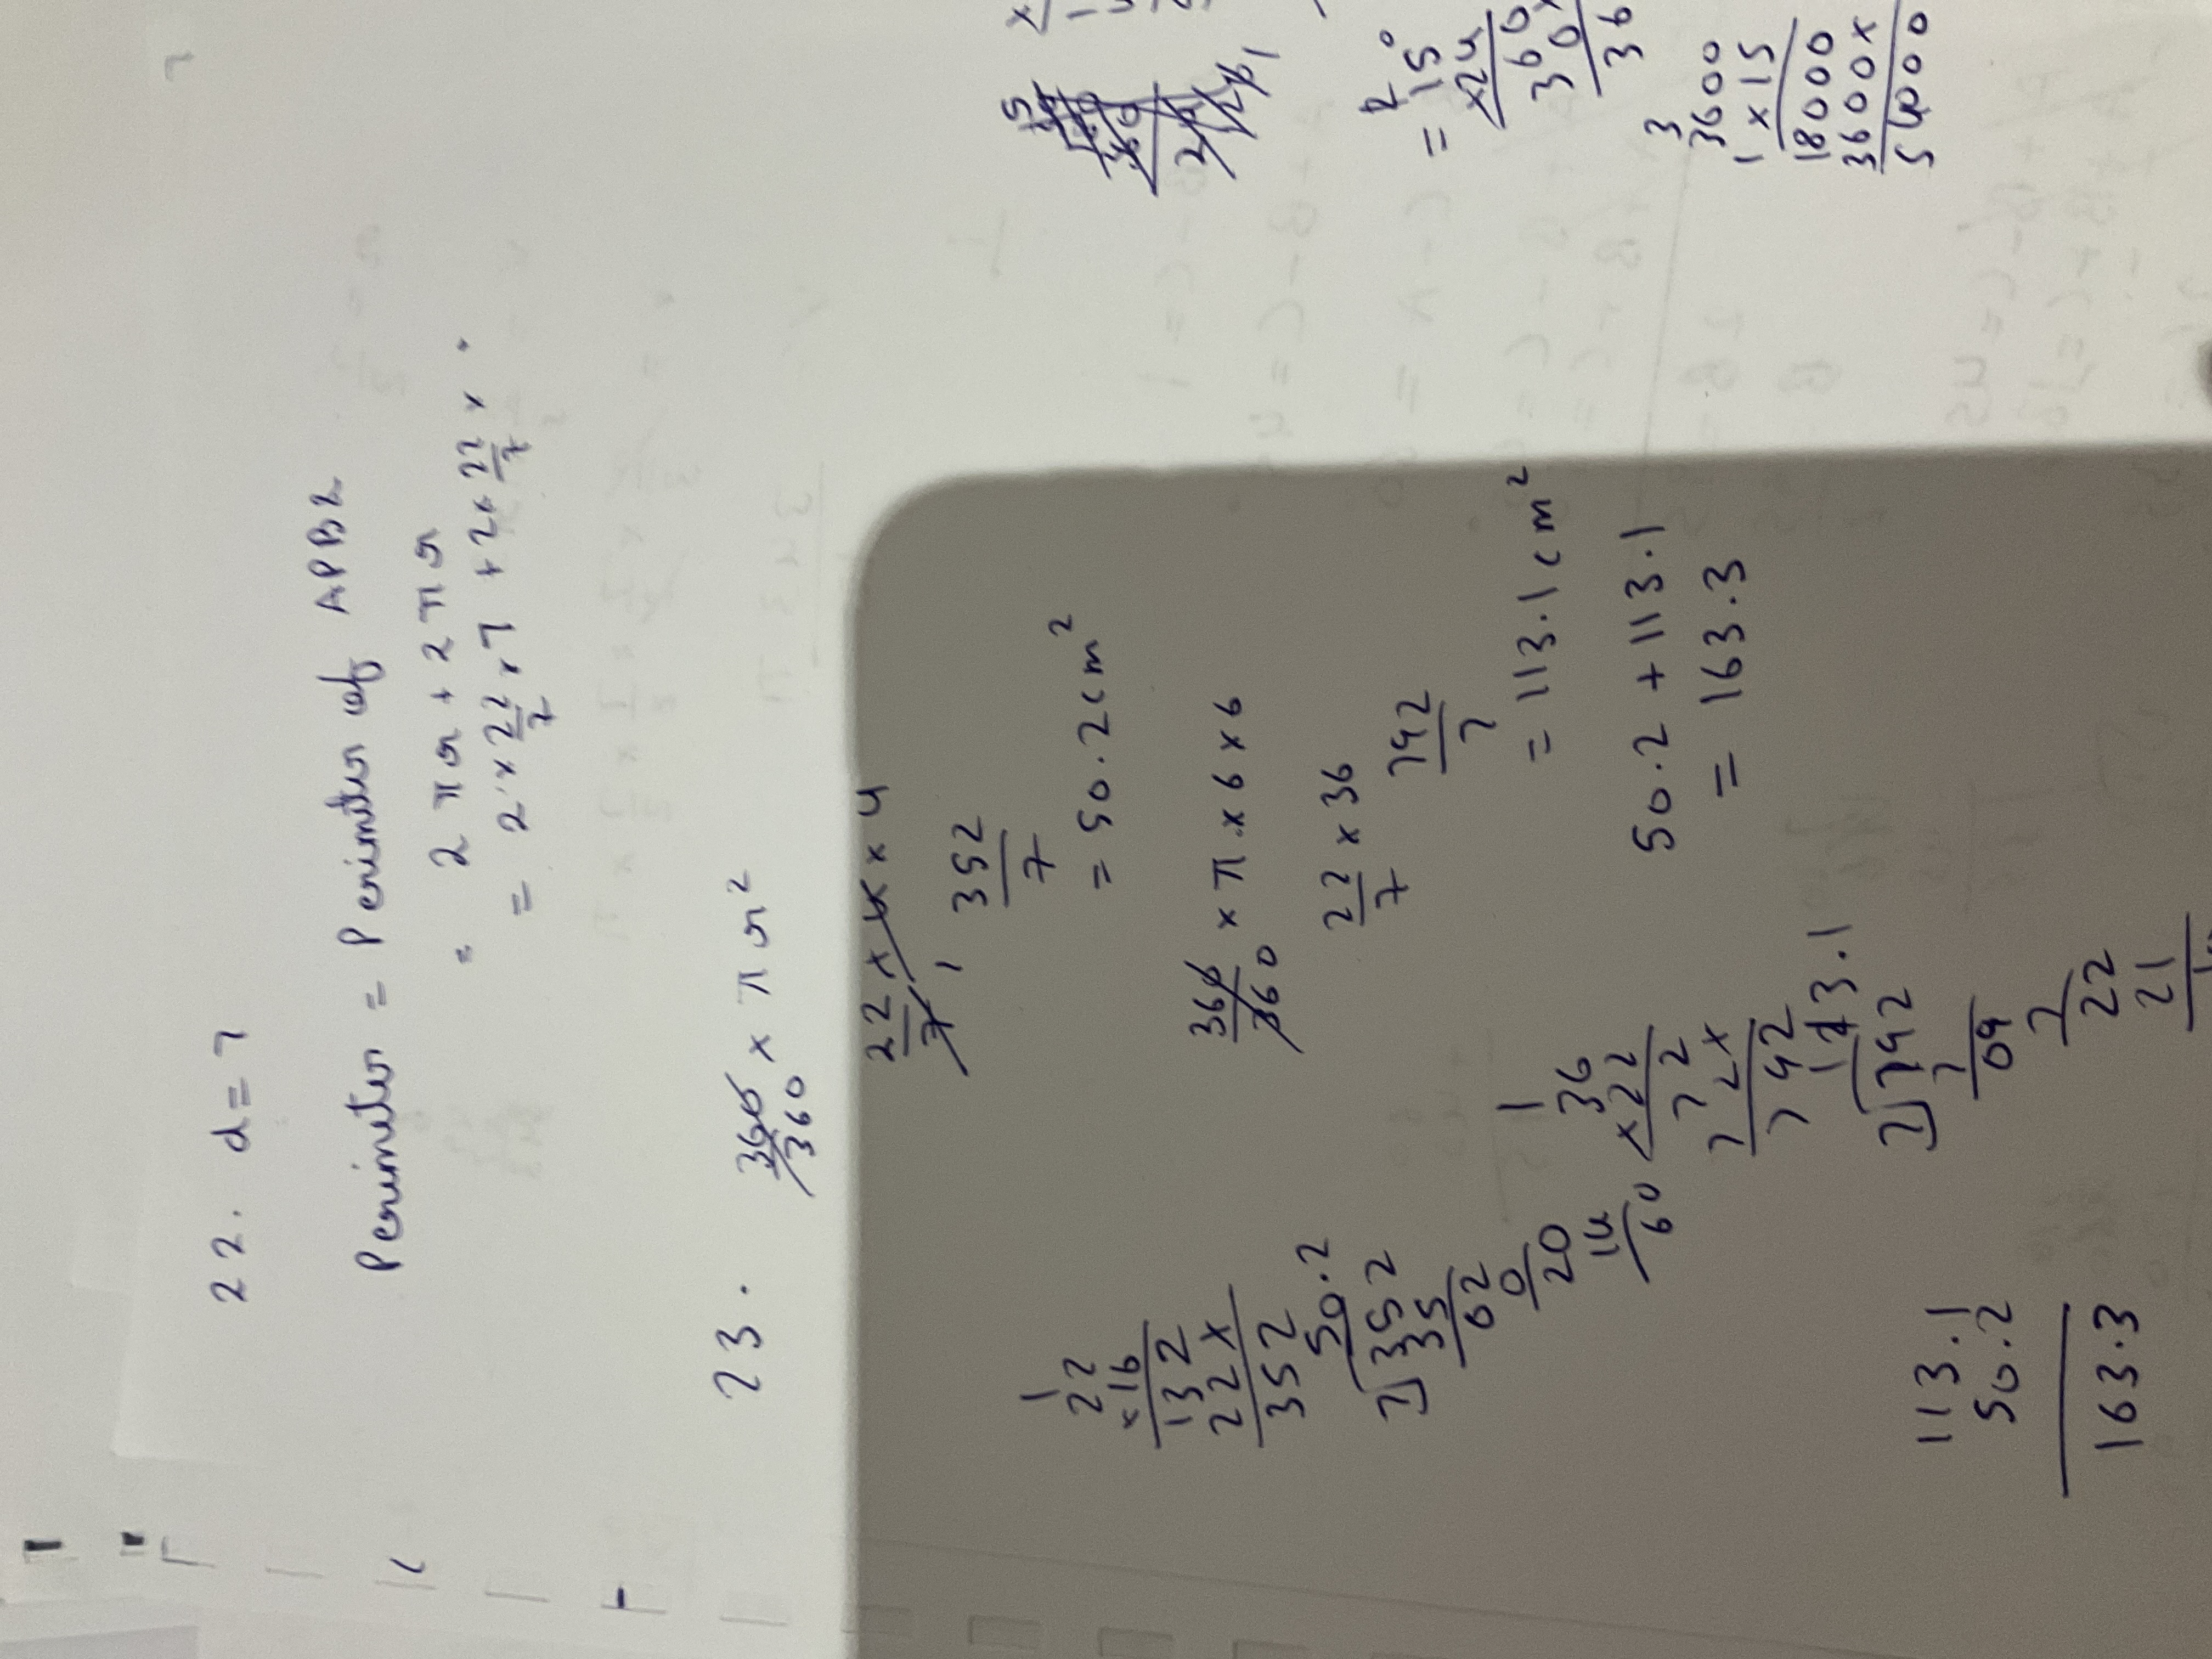 22. d = 7
Perimeter = Perimeter of APB2
= 2πr + 2πr
= 2 × 22/7 × 7 + 2 × 22/7 ×
23. 360/360 × πr²
22/7 × 4 × 4
1
352/7
= 50.2 cm²
360/360 × π × 6 × 6
22/7 × 36
792/7
= 113.1 cm²
50.2 + 113.1
= 163.3
1
22
×16
132
22×
352
50.2
7)352
35
02
0
20
14
60
1
36
×22
72
72×
792
113.1
7)792
7
09
7
22
21
113.1
50.2
163.3
15
360
24
1
2
= 15°
×24
360
36
3
3600
1 × 15
18000
3600×
54000